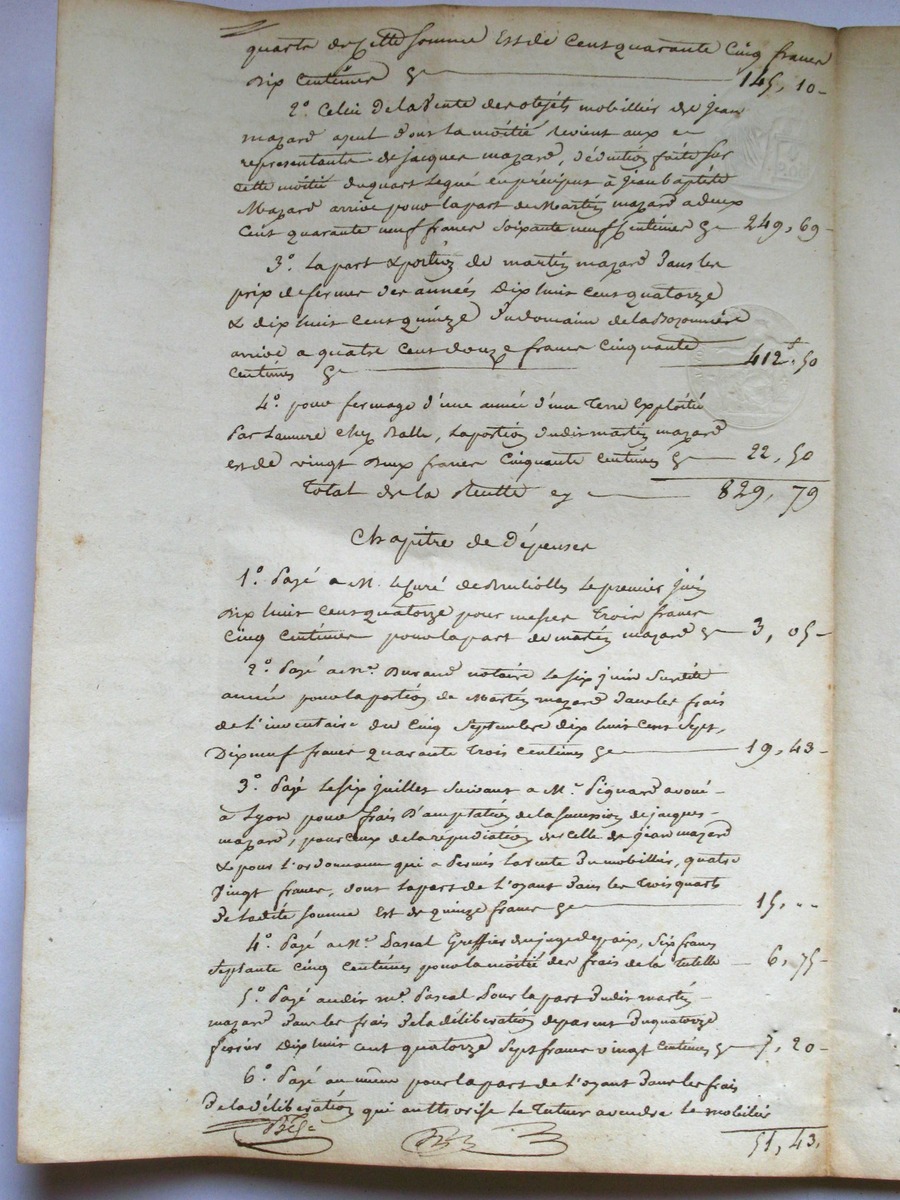 quarts de cette somme Est de Cent quarante Cinq francs
dix centimes 145, 10
2.° Celui De la Vente des objets mobilliers de jean
mazard ayeul dont la moitié revient aux
representants de jacques mazard, déduction faite sur
cette moitié du quart Legué en préciput à jean baptiste
Mazard arrive pour la part de Martin mazard a deux
Cent quarante neuf francs Soixante neuf Centimes 249, 69
3.° La part & portion de martin mazard Dans les
prix de fermes des années Dix huit Cent quatorze
& dix huit Cent quinze Du domaine de la
arrive a quatre Cent douze francs Cinquante
centimes 412 f. 50
4.° pour fermage d'une année d'une Terre Exploitée
Par chez Balle, La portion dudit martin mazard
est de vingt Deux francs Cinquante Centimes 22, 50
Total de la Recette cy 829, 79
Chapitre de Dépenses
1.° Payé a M. Le Curé de Brulioles Le premier juin
Dix huit Cent quatorze pour messes Trois francs
Cinq Centimes pour la part de martin mazard 3, 05
2.° Payé a M.e Durand notaire Le six juin Susdite
année pour la portion de Martin mazard Dans les frais
de L'inventaire du Cinq Septembre dix huit Cent Sept,
Dix neuf francs quarante Trois Centimes 19, 43
3.° Payé Le six juillet Suivant a M.e Piquard avoué
à Lyon pour frais D'acceptation de la Succession de jacques
mazard, pour Ceux de la répudiation de Celle de jean mazard
& pour L'ordonnance qui a Permis La vente Du mobillier, quatre
Vingt francs, dont La part de L'oyant Dans les Trois quarts
De la dite Somme Est de quinze francs 15, "
4.° Payé a M.e Pascal Greffier du juge de paix, Six francs
Septante Cinq Centimes pour la moitié des frais de la Tutelle 6, 75
5.° Payé audit M.e Pascal Pour la part Dudit martin
mazard Dans les frais De la déliberation de parent Du quatorze
fevrier Dix huit cent quatorze Sept francs vingt Centimes 7, 20
6.° Payé au même pour la part de L'oyant Dans les frais
De la déliberation qui authorise Le Tuteur a vendre Le mobilier
51, 43